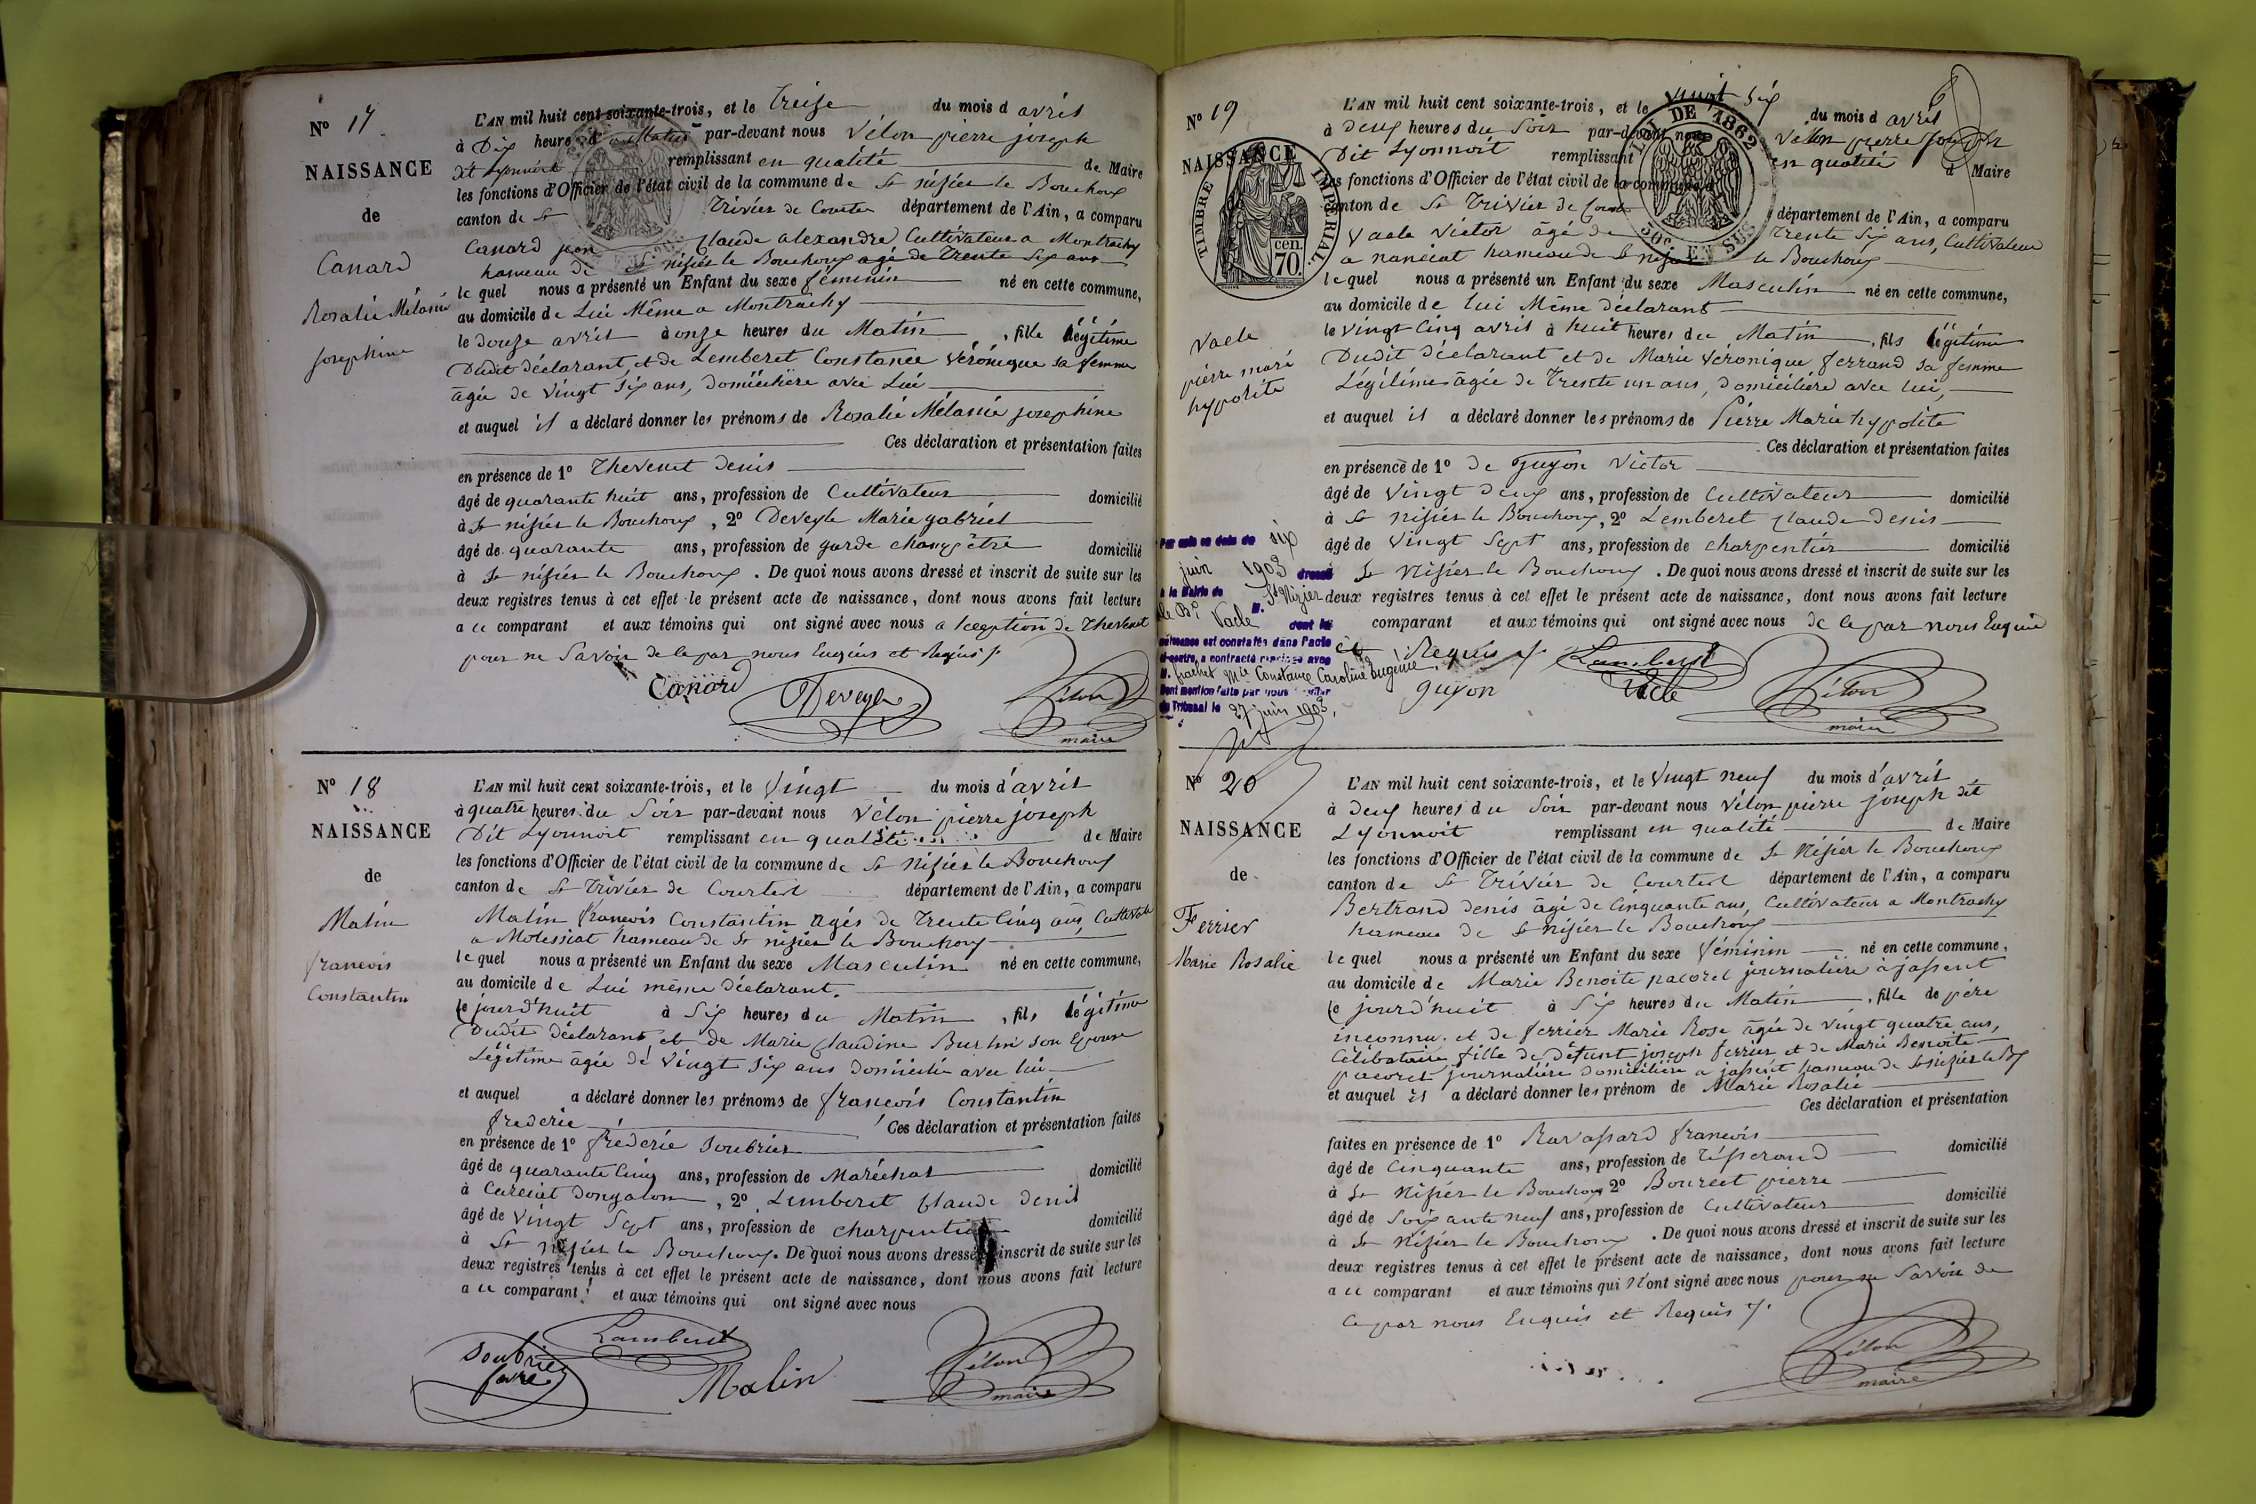 N° 17
NAISSANCE
de
Canard
Rosalie Mélanie
Josephine
L'AN mil huit cent soixante-trois, et le Treize du mois d avril
à Dix heures du Matin par-devant nous Vélon pierre joseph
dit Lyonnoit remplissant en qualité de Maire
les fonctions d'Officier de l'état civil de la commune de St nizier le Bouchoux
canton de St Trivier de Courtes département de l'Ain, a comparu
Canard jean Claude alexandre, Cultivateur a Montrachy
hameau de St nizier le Bouchoux agé de Trente Six ans
lequel nous a présenté un Enfant du sexe féminin né en cette commune,
au domicile de Lui Même a Montrachy
le douze avril à onze heures du Matin, fille légitime
Dudit déclarant, et de Lemberet Constance Véronique sa femme
âgée de vingt Six ans, domiciliére avec Lui
et auquel il a déclaré donner les prénoms de Rosalie Mélanie josephine
Ces déclaration et présentation faites
en présence de 1° Thevenet denis
âgé de quarante huit ans, profession de Cultivateur domicilié
à St nizier le Bouchoux, 2° Deveyle Marie gabriel
âgé de quarante ans, profession de garde champêtre domicilié
à St nizier le Bouchoux. De quoi nous avons dressé et inscrit de suite sur les
deux registres tenus à cet effet le présent acte de naissance, dont nous avons fait lecture
a ce comparant et aux témoins qui ont signé avec nous a l'exeption de Thevenet
pour ne Savoir de ce par nous Enquis et Requis /.
Canard Deveyle Vélon
maire
N° 18
NAISSANCE
de
Malin
francois
Constantin
L'AN mil huit cent soixante-trois, et le Vingt du mois d'avril
à quatre heures du Soir par-devant nous Vélon pierre joseph
Dit Lyonnoit remplissant en qualité de Maire
les fonctions d'Officier de l'état civil de la commune de St Nizier le Bouchoux
canton de St Trivier de Courtes département de l'Ain, a comparu
Malin francois Constantin agés de Trente Cinq ans, Cultivate
a Molessiat hameau de St nizier le Bouchoux
lequel nous a présenté un Enfant du sexe Masculin né en cette commune,
au domicile de Lui même déclarant.
le jourd'huit à Six heures du Matin, fils légitime
Dudit déclarant et de Marie Claudine Burtin son Epouse
Légitime âgée de vingt Six ans domiciliée avec lui
et auquel a déclaré donner les prénoms de francois Constantin
frederic Ces déclaration et présentation faites
en présence de 1° fréderic Soubrier
âgé de quarante Cinq ans, profession de Maréchal domicilié
à Curciat Dongalon, 2° Lemberet Claude Denis
âgé de vingt Sept ans, profession de charpentier domicilié
à St nizier le Bouchoux. De quoi nous avons dressé et inscrit de suite sur les
deux registres tenus à cet effet le présent acte de naissance, dont nous avons fait lecture
a ce comparant et aux témoins qui ont signé avec nous
Soubrier Lamberet Malin Vélon
maire
N° 19
NAISSANCE
TIMBRE IMPÉRIAL
cen.
70.
LOI DE 1862
50c. EN SUS
Vacle
pierre marie
hypolite
L'AN mil huit cent soixante-trois, et le vingt Six du mois d avril
à deux heures du Soir par-devant nous Vélon pierre Joseph
Dit Lyonnoit remplissant en qualité d Maire
les fonctions d'Officier de l'état civil de la commune d
canton de St Trivier de Courtes département de l'Ain, a comparu
Vacle Victor âgé de Trente Six ans, Cultivateur
a nanciat hameau de St nizier le Bouchoux
lequel nous a présenté un Enfant du sexe Masculin né en cette commune,
au domicile de lui Même déclarant
le vingt Cinq avril à huit heures du Matin, fils légitime
Dudit déclarant et de Marie Véronique ferrand sa femme
Légitime âgée de Trente un ans, domiciliére avec lui,
et auquel il a déclaré donner les prénoms de Pierre Marie hypolite
Ces déclaration et présentation faites
en présence de 1° de Guyon Victor
âgé de vingt deux ans, profession de Cultivateur domicilié
à St nizier le Bouchoux, 2° Lemberet Claude Denis
âgé de vingt Sept ans, profession de charpentier domicilié
à St Nizier le Bouchoux. De quoi nous avons dressé et inscrit de suite sur les
deux registres tenus à cet effet le présent acte de naissance, dont nous avons fait lecture
comparant et aux témoins qui ont signé avec nous de ce par nous Enquis
et Requis /.
Lamberet
guyon Vacle Vélon
maire
Par acte en date du six
juin 1903 dressé
à la Mairie de St Nizier
le Bx M. Vacle dont la
naissance est constatée dans l'acte
ci-contre, a contracté mariage avec
M. Mie Constance Caroline Eugénie.
Dont mention faite par nous Greffier
du Tribunal le 27 juin 1903.
N° 20
NAISSANCE
de
Ferrier
Marie Rosalie
L'AN mil huit cent soixante-trois, et le Vingt neuf du mois d'avril
à deux heures du Soir par-devant nous Vélon pierre joseph dit
Lyonnoit remplissant en qualité de Maire
les fonctions d'Officier de l'état civil de la commune de St Nizier le Bouchoux
canton de St Trivier de Courtes département de l'Ain, a comparu
Bertrand denis âgé de Cinquante ans, Cultivateur a Montrachy
hameau de St nizier le Bouchoux
lequel nous a présenté un Enfant du sexe féminin né en cette commune,
au domicile de Marie Benoite pacoret journalière à jassent
le jourd'huit à Six heures du Matin, fille de père
inconnu. et de ferrier Marie Rose âgée de vingt quatre ans,
Célibataire fille de défunt joseph ferrier et de Marie Benoite
pacoret journalière domiciliére a jassent hameau de St nizier le Bx
et auquel il a déclaré donner les prénom de Marie Rosalie
Ces déclaration et présentation
faites en présence de 1° Ravassard francois
âgé de Cinquante ans, profession de Tisserand domicilié
à St Nizier le Bouchoux 2° Bourcet pierre
âgé de Soixante neuf ans, profession de Cultivateur domicilié
à St Nizier le Bouchoux. De quoi nous avons dressé et inscrit de suite sur les
deux registres tenus à cet effet le présent acte de naissance, dont nous avons fait lecture
a ce comparant et aux témoins qui n'ont signé avec nous pour ne Savoir de
Ce par nous Enquis et Requis /.
Vélon
maire